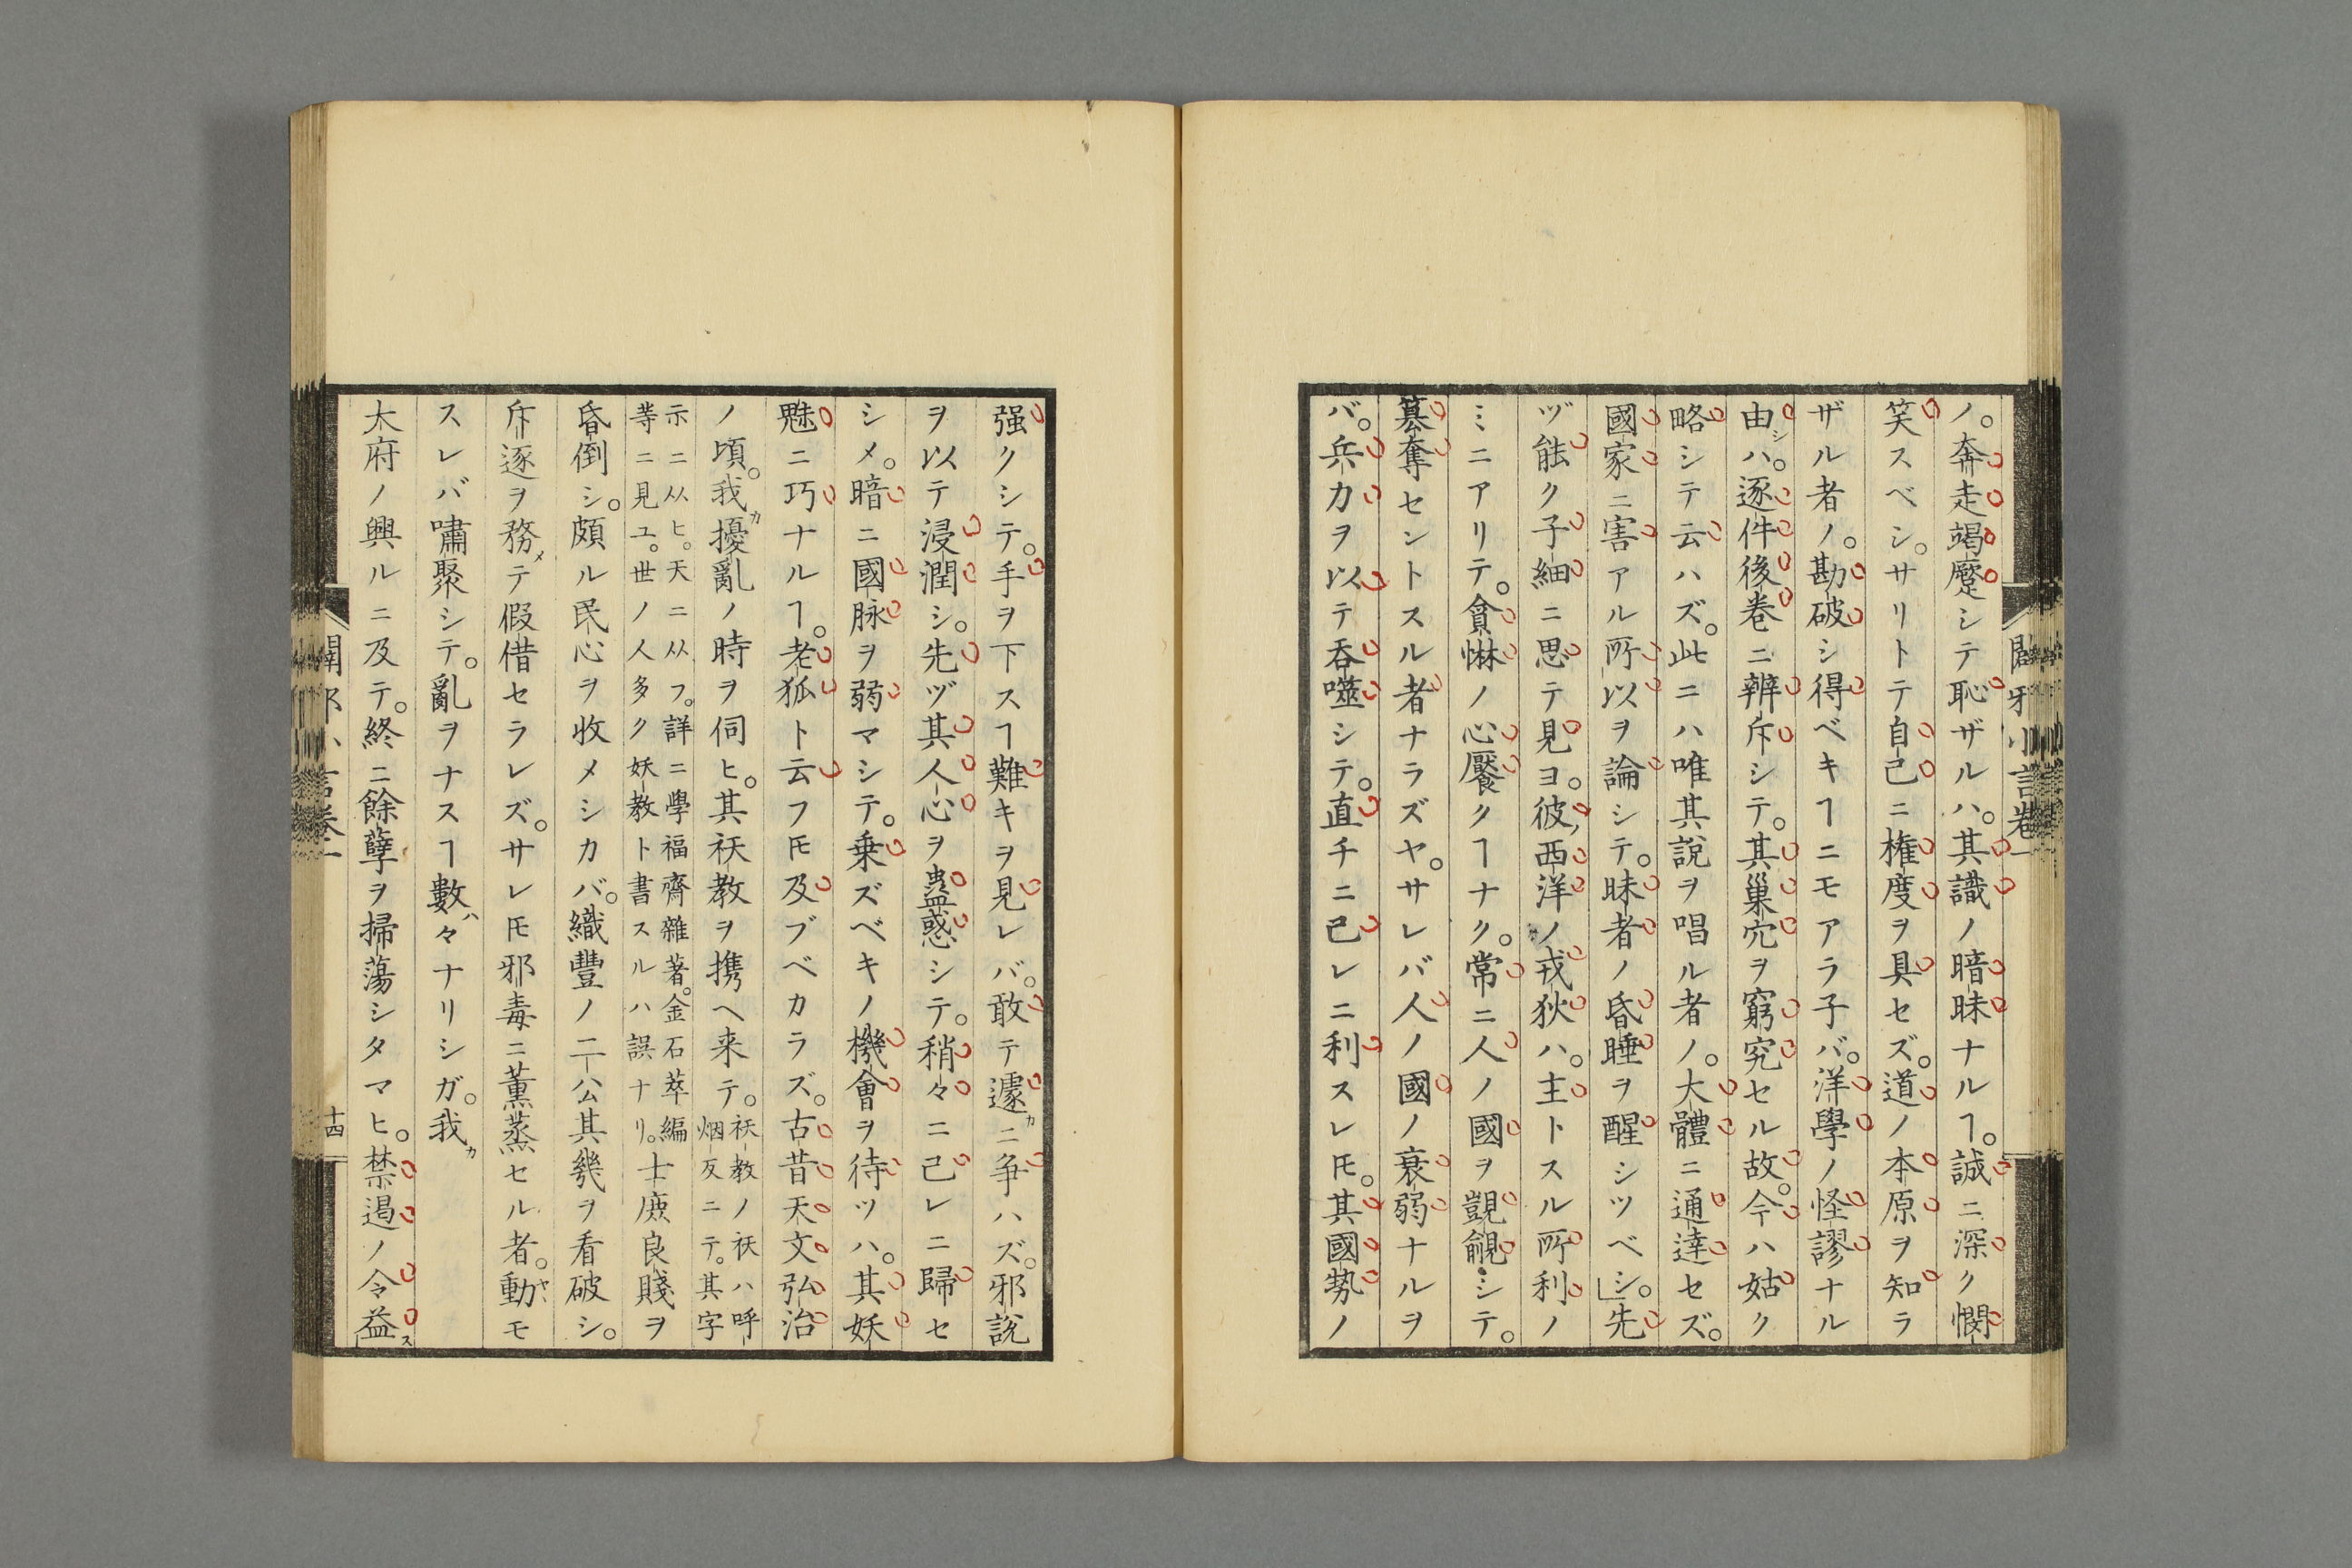 闢邪小言卷一
ノ。奔走竭蹷シテ恥ザルハ。其識ノ暗昧ナルヿ。誠ニ深ク憫
笑スベシ。サリトテ自己ニ権度ヲ具セズ。道ノ本原ヲ知ラ
ザル者ノ。勘破シ得ベキヿニモアラ子バ。洋學ノ怪謬ナル
由シハ。逐件後巻ニ辨斥シテ。其巢穴ヲ窮究セル故。今ハ姑ク
略シテ云ハズ。此ニハ唯其說ヲ唱ル者ノ。大體ニ通達セズ。
國家ニ害アル所以ヲ論シテ。昧者ノ昏睡ヲ醒シツベシ。先
ヅ能ク子細ニ思テ見ヨ。彼ノ西洋ノ戎狄ハ。主トスル所利ノ
ミニアリテ。貪惏ノ心饜クヿナク。常ニ人ノ國ヲ覬覦シテ。
簒奪セントスル者ナラズヤ。サレバ人ノ國ノ衰弱ナルヲ
バ。兵力ヲ以テ呑噬シテ。直チニ己レニ利スレ𪜈。其國勢ノ
强クシテ。手ヲ下スヿ難キヲ見レバ。敢テ遽カニ争ハズ。邪說
ヲ以テ浸潤シ。先ヅ其人心ヲ蠱惑シテ。稍々ニ己レニ歸セ
シメ。暗ニ國脉ヲ弱マシテ。乗ズベキノ機會ヲ待ツハ。其妖
魅ニ巧ナルヿ。老狐ト云フ𪜈及ブベカラズ。古昔天文弘治
ノ頃。我カ擾亂ノ時ヲ伺ヒ。其祆教ヲ携ヘ来テ。祆教ノ祆ハ呼
烟反ニテ。其字
示ニ从ヒ。天ニ从フ。詳ニ學福齊雜著。金石萃編
等ニ見ユ。世ノ人多ク妖教ト書スルハ誤ナリ。士庻良賤ヲ
昏倒シ。頗ル民心ヲ收メシカバ。織豐ノ二公其幾ヲ看破シ。
斥逐ヲ務メテ假借セラレズ。サレ𪜈邪毒ニ薫蒸セル者。動ヤヽモ
スレバ嘯聚シテ。亂ヲナスヿ數ハ々ナリシガ。我カ
大府ノ興ルニ及テ。終ニ餘孽ヲ掃蕩シタマヒ。禁遏ノ令益ス
闢邪小言卷一
十四